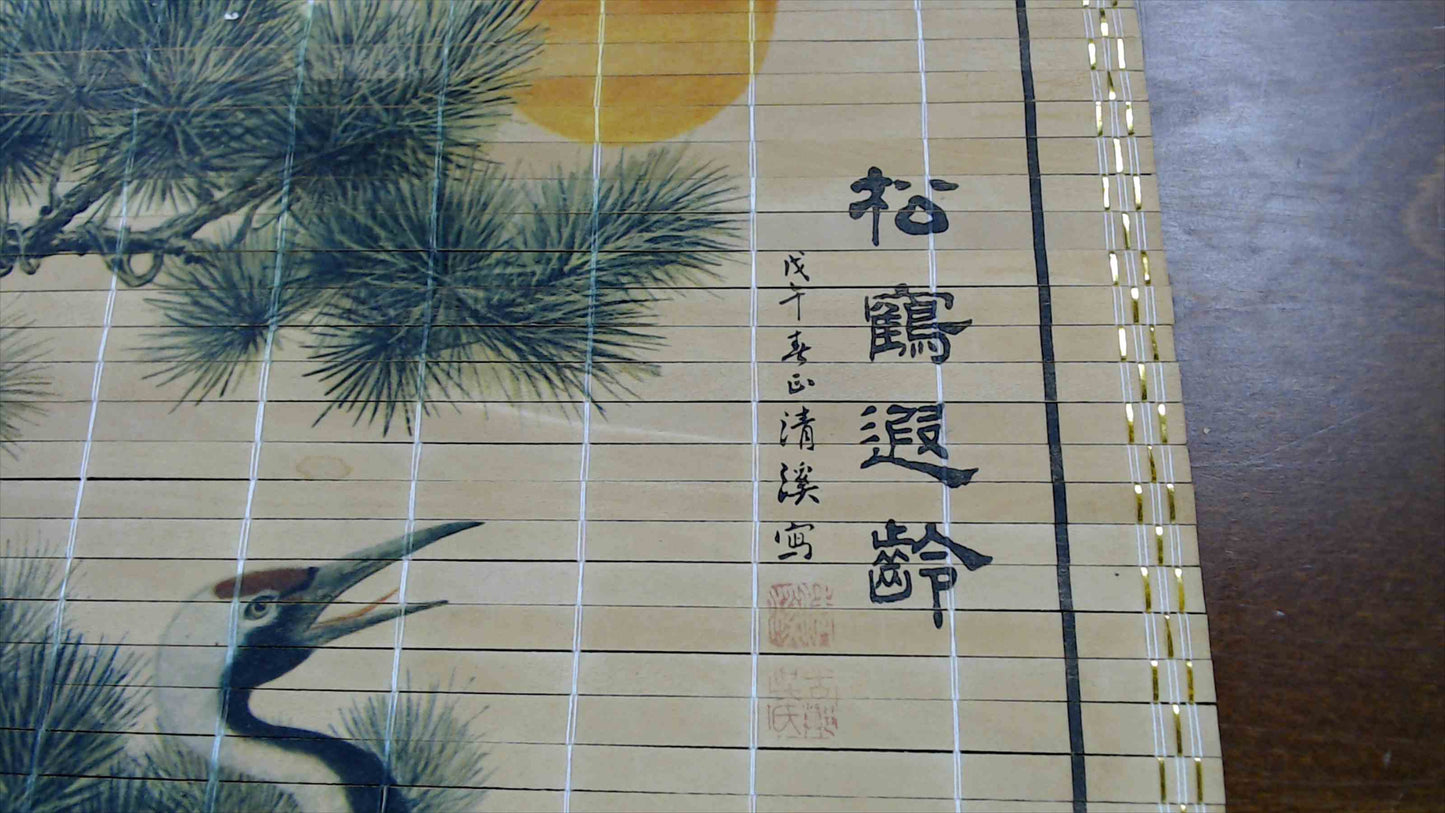 松鶴遐齡
戊午春正清溪寫